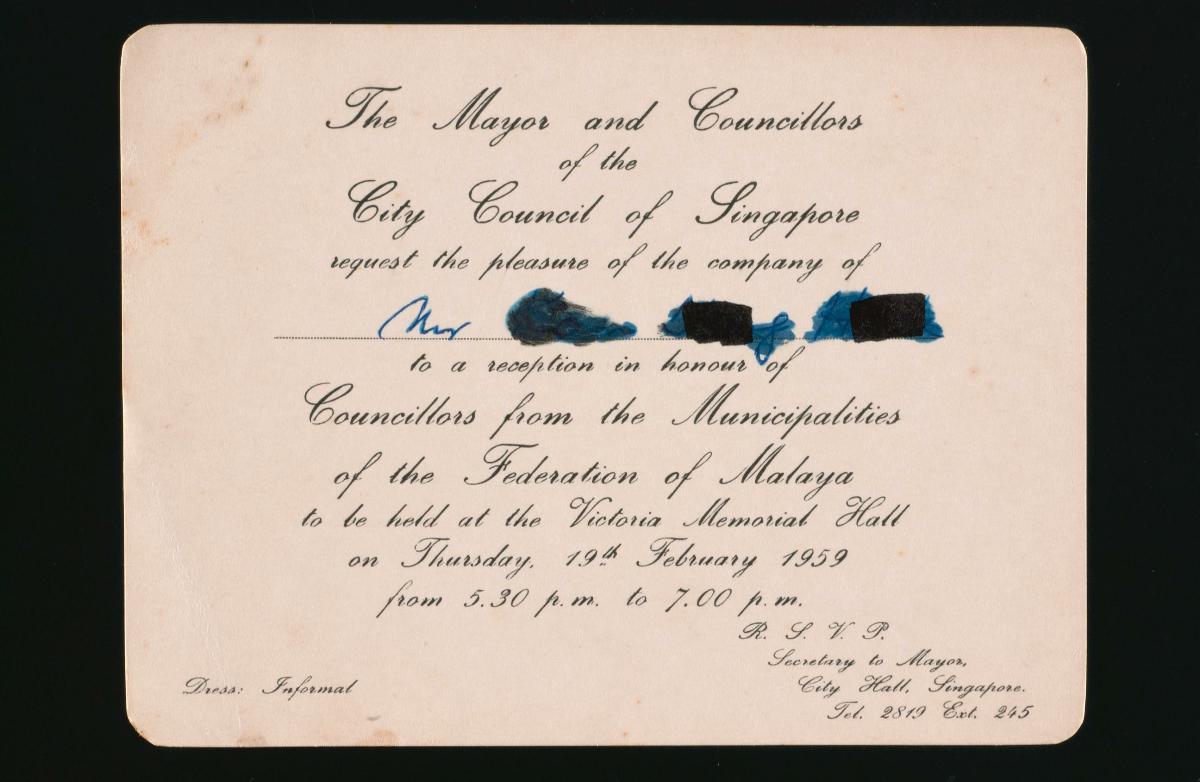 The Mayor and Councillors
of the
City Council of Singapore
request the pleasure of the company of
to a reception in honour of
Councillors from the Municipalities
of the Federation of Malaya
to be held at the Victoria Memorial Hall
on Thursday, 19th February 1959
from 5.30 p.m. to 7.00 p.m.
R. S. V. P.
Secretary to Mayor,
City Hall, Singapore.
Tel. 2819 Ext. 245
Dress: Informal